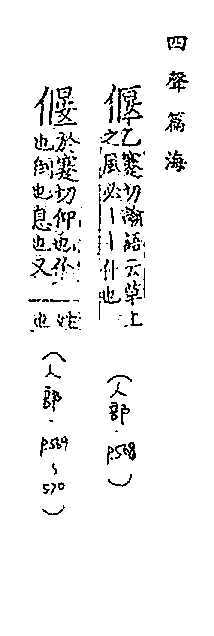 四聲篇海
乙蹇切論語云草上
之風必丨丨仆也
(人部.P.568)
於蹇切仰也仆
也倒也息也又
姓也
(人部.P.569~570)